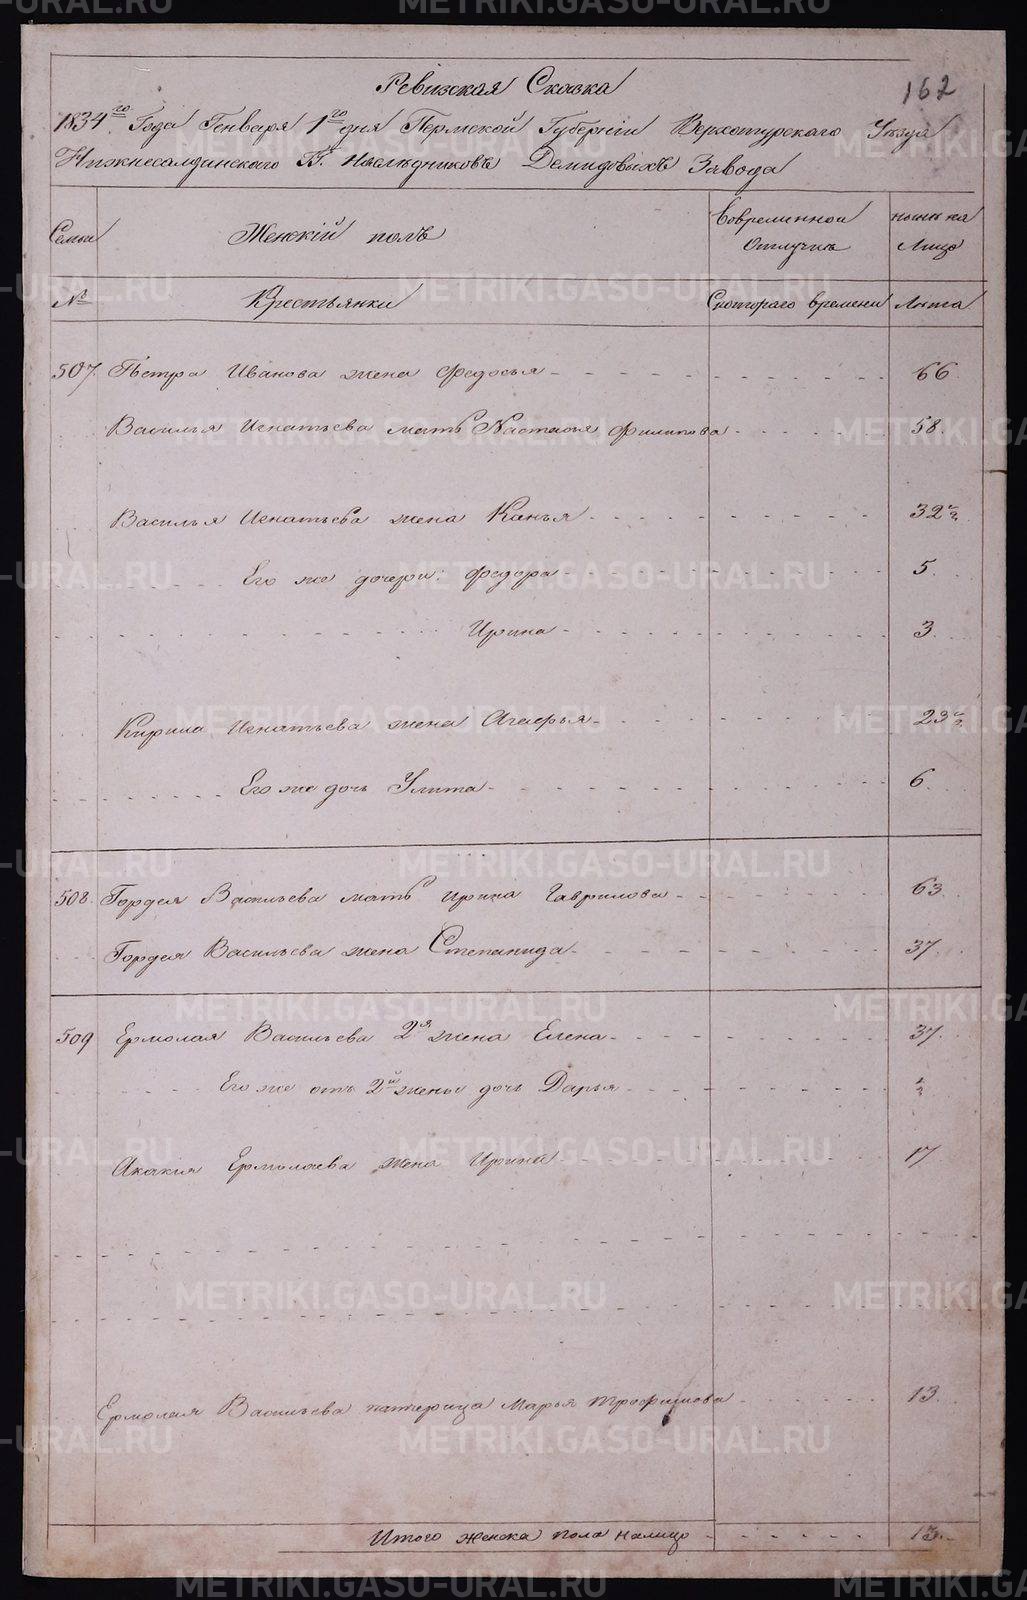 162
Ревизская Сказка
1834го Года Генваря 1го дня Пермской Губернiи Верхотурскаго Уѣзда
Нижнесалдинскаго Гг. Наслѣдниковъ Демидовыхъ Завода
Семьи Женскiй полъ Вовременной Отлучке ныне на Лицо
№ Крестьянки Скотораго времени Лѣта
507. Петра Иванова жена Федосья 66
Василья Игнатьева мать Настасья Филипова 58.
Василья Игнатьева жена 32 1/2
Его же дочери: Федора 5.
Ирина 3
Кирила Игнатьева жена Агафья 23 1/2
Его же дочь Улита 6.
508. Гордея Васильева мать Ирина Гаврилова 63
Гордея Васильева жена Степанида 37.
509 Ермолая Васильева 2я жена Елена 37.
Его же отъ 2й жены дочь Дарья 1/2
Акакия Ермолаева жена Ирина 17
Ермолая Васильева патерица Марья Трофимова 13
Итого женска пола налицо 13.
METRIKI.GASO-URAL.RU